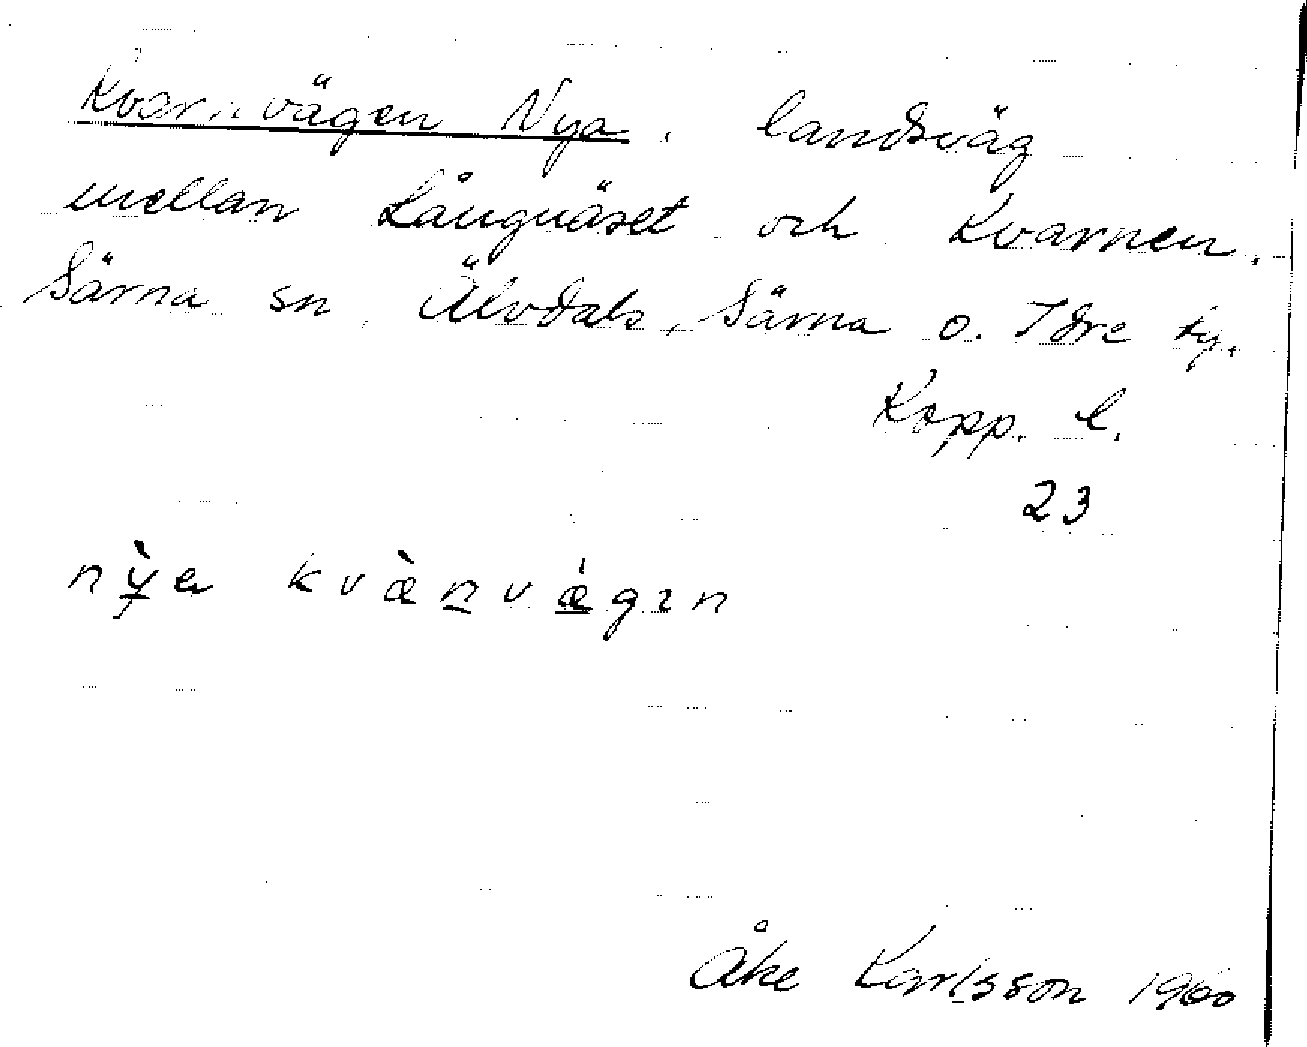 Kvarnvägen Nya. landsväg
mellan Långnäset och Kvarnen.
Särna sn, Älvdals, Särna o. Idre ty.
Kopp. l.
23
nỳ̱a kvæ̀n̠vǽ̱gın
Åke Karlsson 1960